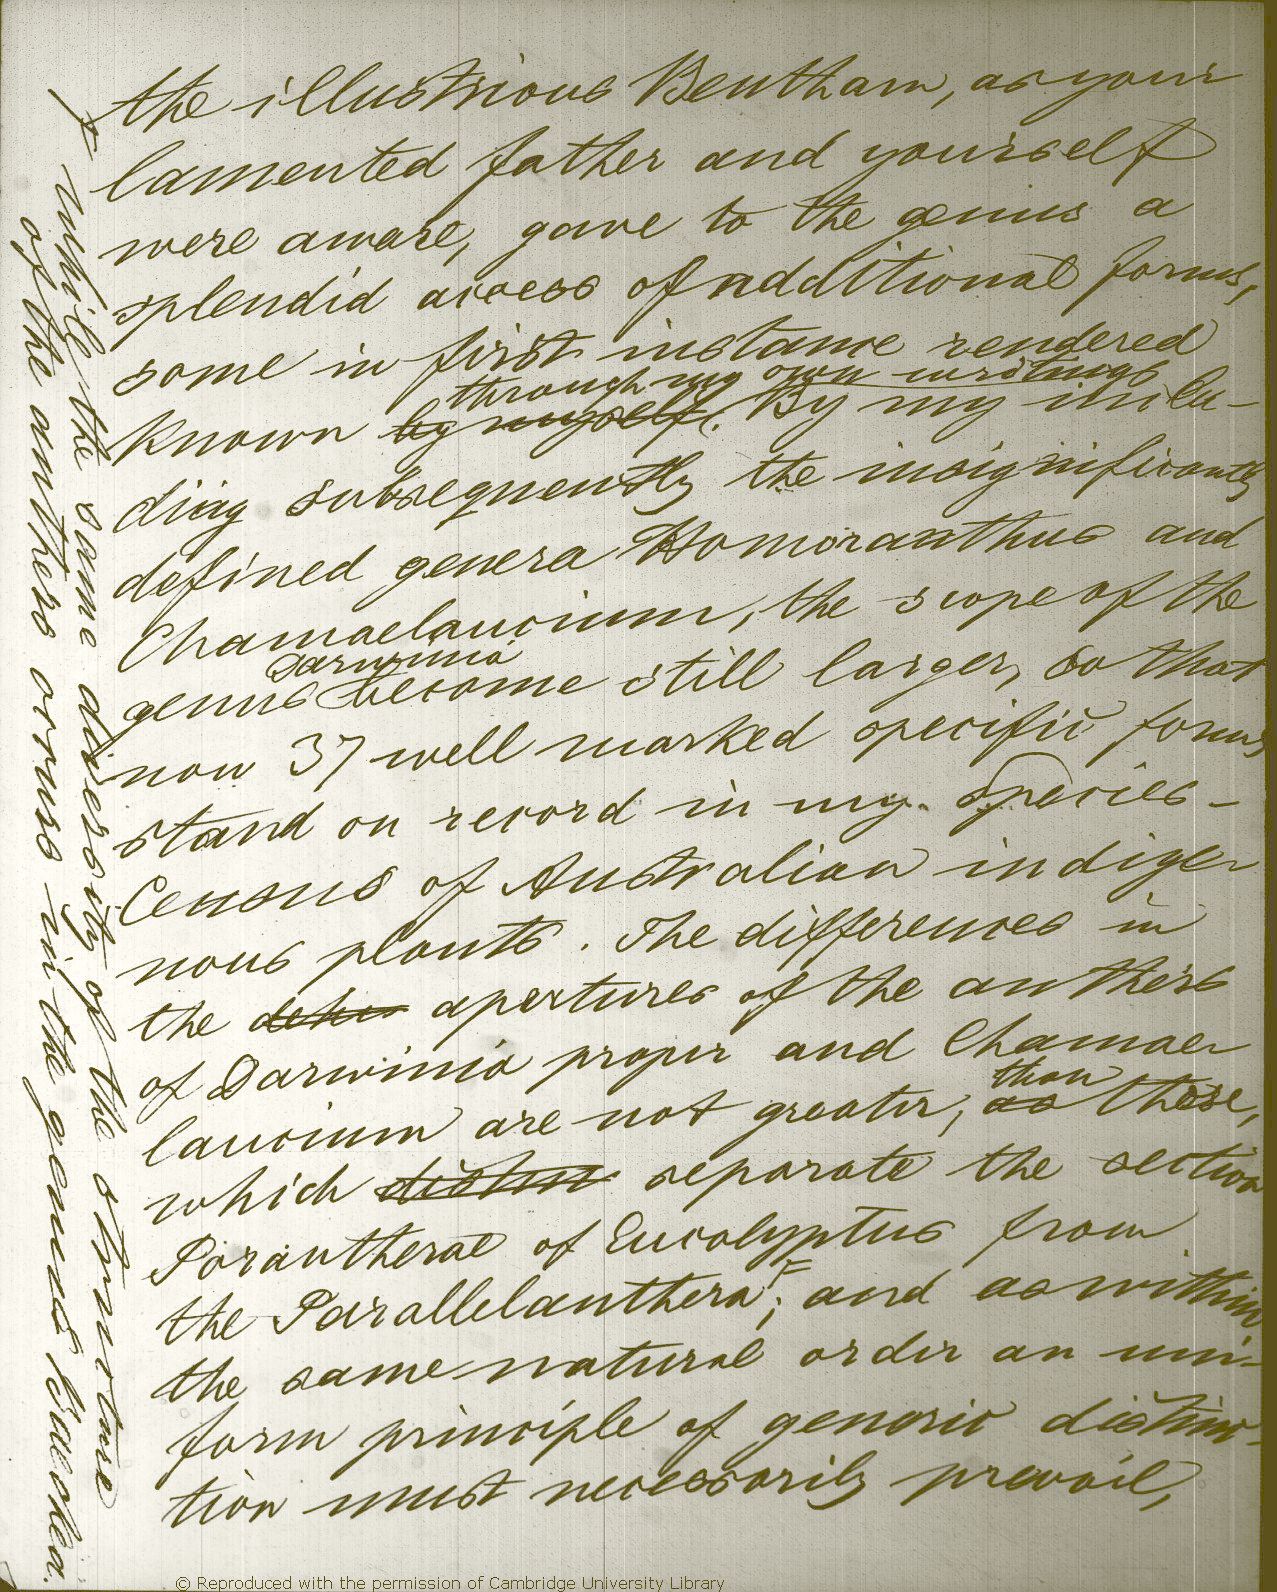 the illustrious Bentham, as your
lamented father and yourself
were aware, gave to the genus a
splendid access of additional forms,
some in first instance rendered
through my own writings
known by myself. By my inclu-
ding subsequently the insignificantly
defined genera Homoranthus and
Chamaelaucium, the scope of the
Darwinia
genus become still larger, so that
now 37 well marked specific forms
stand on record in my species-
Census of Australian indige
nous plants. The differences in
the dehis apertures of the anthers
of Darwinia proper and Chamae
than
laucium are not greater, as these,
which distin separate the section
Porantherae of Eucalyptus from
the Parallelanthera; and as within
the same natural order an uni-
form principle of generic distinc-
tion must necessarily prevail,
while the same diversity of the structure
of the anthers occurs in the genus Baeckea.
© Reproduced with the permission of Cambridge University Library